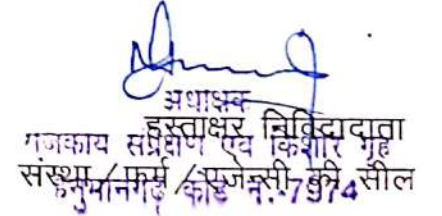 अधीक्षक
हस्ताक्षर निविदादाता
राजकीय संप्रेक्षण एवं किशोर गृह
संस्था / फर्म / एजेन्सी की सील
हनुमानगढ़ कोड नं.-7974